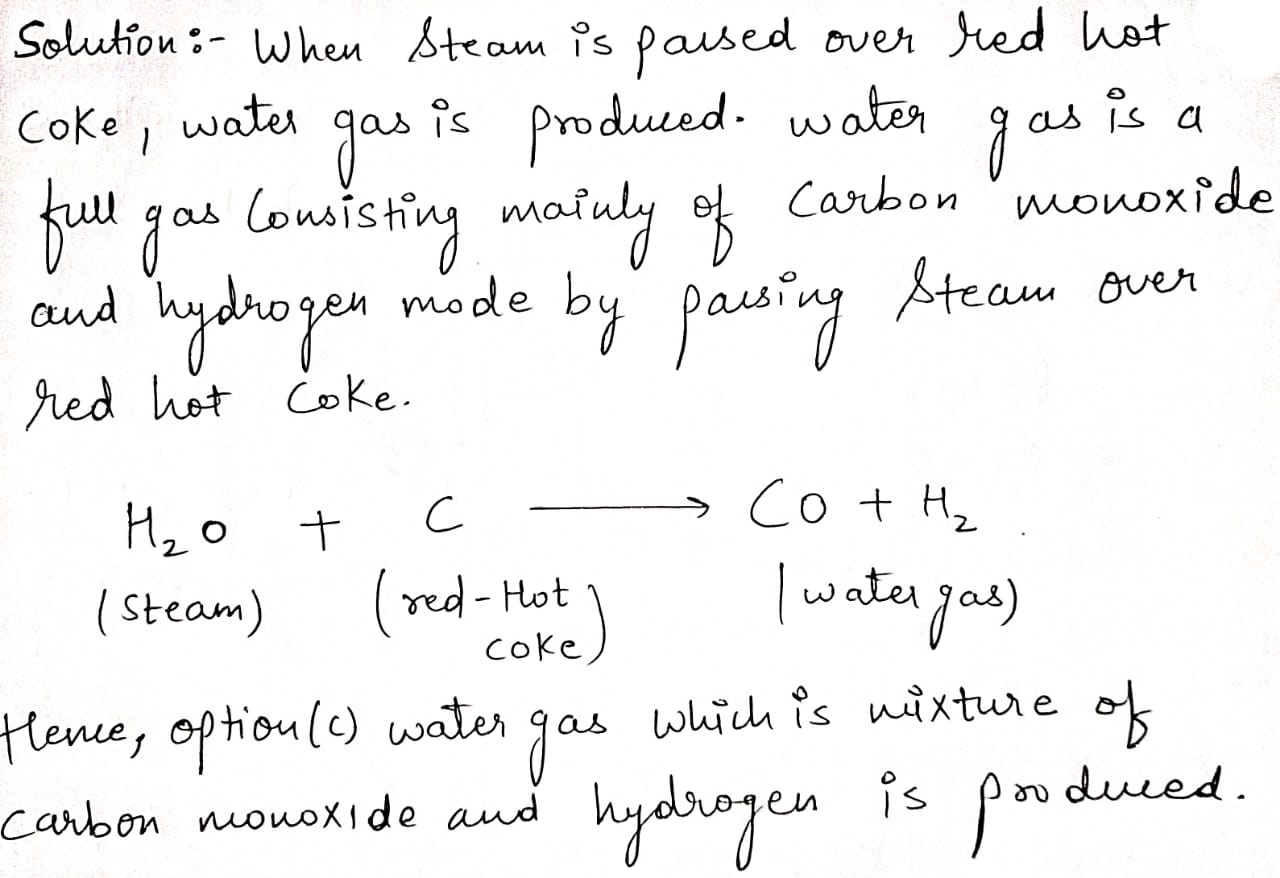 Solution:- When Steam is passed over red hot
coke, water gas is produced. water gas is a
full gas Consisting mainly of Carbon monoxide
and hydrogen mode by passing Steam over
red hot Coke.
H₂O + C ⟶ CO + H₂
(Steam) (red-Hot coke) (water gas)
Hence, option(c) water gas which is mixture of
carbon monoxide and hydrogen is produced.